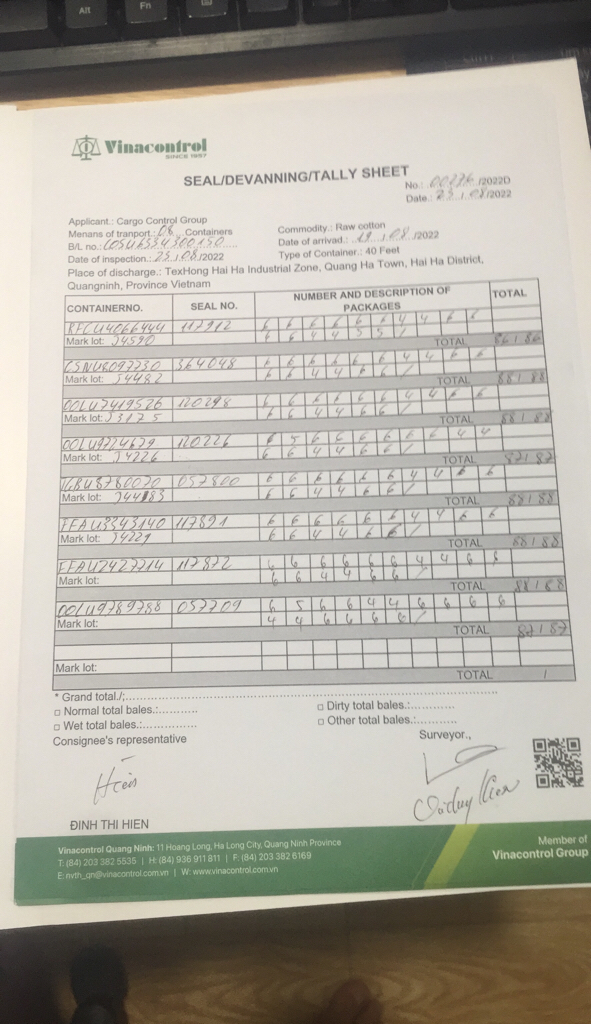 Alt
Fn
Vinacontrol
SINCE 1957
SEAL/DEVANNING/TALLY SHEET
No.: 00226 /2022D
Date.: 23 / 08 /2022
Applicant.: Cargo Control Group
Menans of tranport.: 08 Containers
Commodity.: Raw cotton
B/L no.: COSU6334300150
Date of arrivad.: 19 / 08 /2022
Date of inspection.: 23 / 08 /2022
Type of Container.: 40 Feet
Place of discharge.: TexHong Hai Ha Industrial Zone, Quang Ha Town, Hai Ha District,
Quangninh, Province Vietnam
CONTAINERNO. SEAL NO. NUMBER AND DESCRIPTION OF PACKAGES TOTAL
117912 6 6 6 6 6 6 4 4 6 6
Mark lot: J4590 6 6 4 4 5 5 /
TOTAL 86 / 86
364048 6 6 6 6 6 6 4 4 6 6
Mark lot: J4482 6 6 4 4 6 6 /
TOTAL 88 / 88
OOLU7419526 120298 6 6 6 6 6 6 4 4 6 6
Mark lot: J3175 6 6 4 4 6 6 /
TOTAL 88 / 88
120226 6 5 6 6 6 6 6 6 4 4
Mark lot: J4226 6 6 4 4 6 6 /
TOTAL 87 / 87
057800 6 6 6 6 6 6 4 4 6 6
Mark lot: 6 6 4 4 6 6 /
TOTAL 88 / 88
117891 6 6 6 6 6 6 4 4 6 6
Mark lot: J4221 6 6 4 4 6 6 /
TOTAL 88 / 88
117872 6 6 6 6 6 6 4 4 6 6
Mark lot: 6 6 4 4 6 6 /
TOTAL 88 / 88
OOLU9789788 057709 6 5 6 6 4 4 6 6 6 6
Mark lot: 4 4 6 6 6 6 /
TOTAL 87 / 87
Mark lot:
TOTAL /
* Grand total./;
□ Normal total bales.: □ Dirty total bales.:
□ Wet total bales.: □ Other total bales.:
Consignee's representative Surveyor.,
Hien
ĐINH THI HIEN
Vinacontrol Quang Ninh: 11 Hoang Long, Ha Long City, Quang Ninh Province
T: (84) 203 382 5535 | H: (84) 936 911 811 | F: (84) 203 382 6169
E: nvth_qn@vinacontrol.com.vn | W: www.vinacontrol.com.vn
Member of
Vinacontrol Group